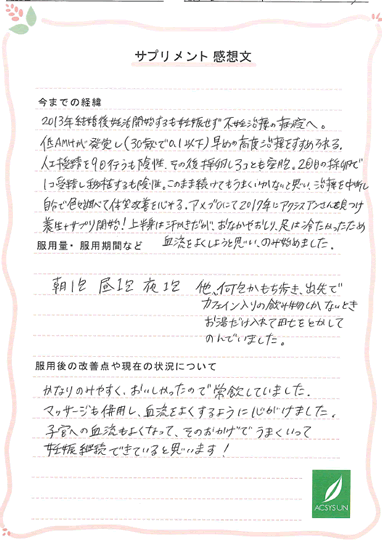 サプリメント 感想文
今までの経緯
2013年結婚後妊活開始するも妊娠せず不妊治療の病院へ。
低AMHが発覚し(30歳で0.1以下)早めの高度治療をすすめられる。
人工授精を9回行うも陰性、その後採卵し3コとも空胞。2回目の採卵で
1コ受精し移植するも陰性。このまま続けてもうまくいかないと思い、治療を中断し
自分で色々調べて体質改善を心がける。アメブロにて2017年にアクシスアンさんを見つけ
養生+サプリ開始!上半身は汗かきだが、おなかやおしり、足は冷たかったため
血流をよくしようと思い、のみ始めました。
服用量・服用期間など
朝1包 昼1包 夜1包 他、何包かもち歩き、出先で
カフェイン入りの飲み物しかないとき
お湯だけ入れて田七をとかして
のんでいました。
服用後の改善点や現在の状況について
かなりのみやすく、おいしかったので常飲していました。
マッサージも併用し、血流をよくするように心がけました。
子宮への血流もよくなって、そのおかげでうまくいって
妊娠継続できていると思います!
ACSYSUN